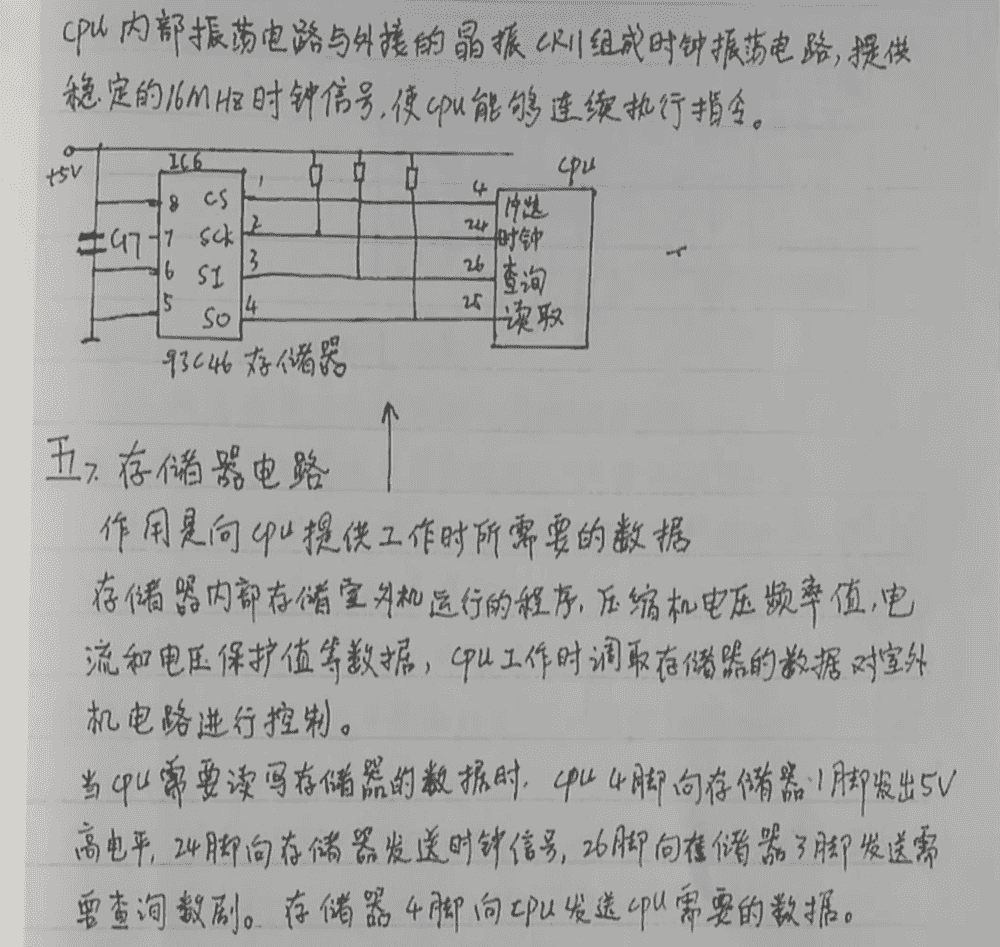 CPU内部振荡电路与外接的晶振CR11组成时钟振荡电路,提供
稳定的16MHZ时钟信号,使CPU能够连续执行指令。
+5V
IC6
CPU
8 CS 1
4 片选
C17
7 SCK 2
24 时钟
6 SI 3
26 查询
5 SO 4
25 读取
93C46 存储器
五、存储器电路
作用是向CPU提供工作时所需要的数据
存储器内部存储室外机运行的程序,压缩机电压频率值,电
流和电压保护值等数据,CPU工作时调取存储器的数据对室外
机电路进行控制。
当CPU需要读写存储器的数据时,CPU 4脚向存储器1脚发出5V
高电平,24脚向存储器发送时钟信号,26脚向存储器3脚发送需
要查询数剧。存储器4脚向CPU发送CPU需要的数据。